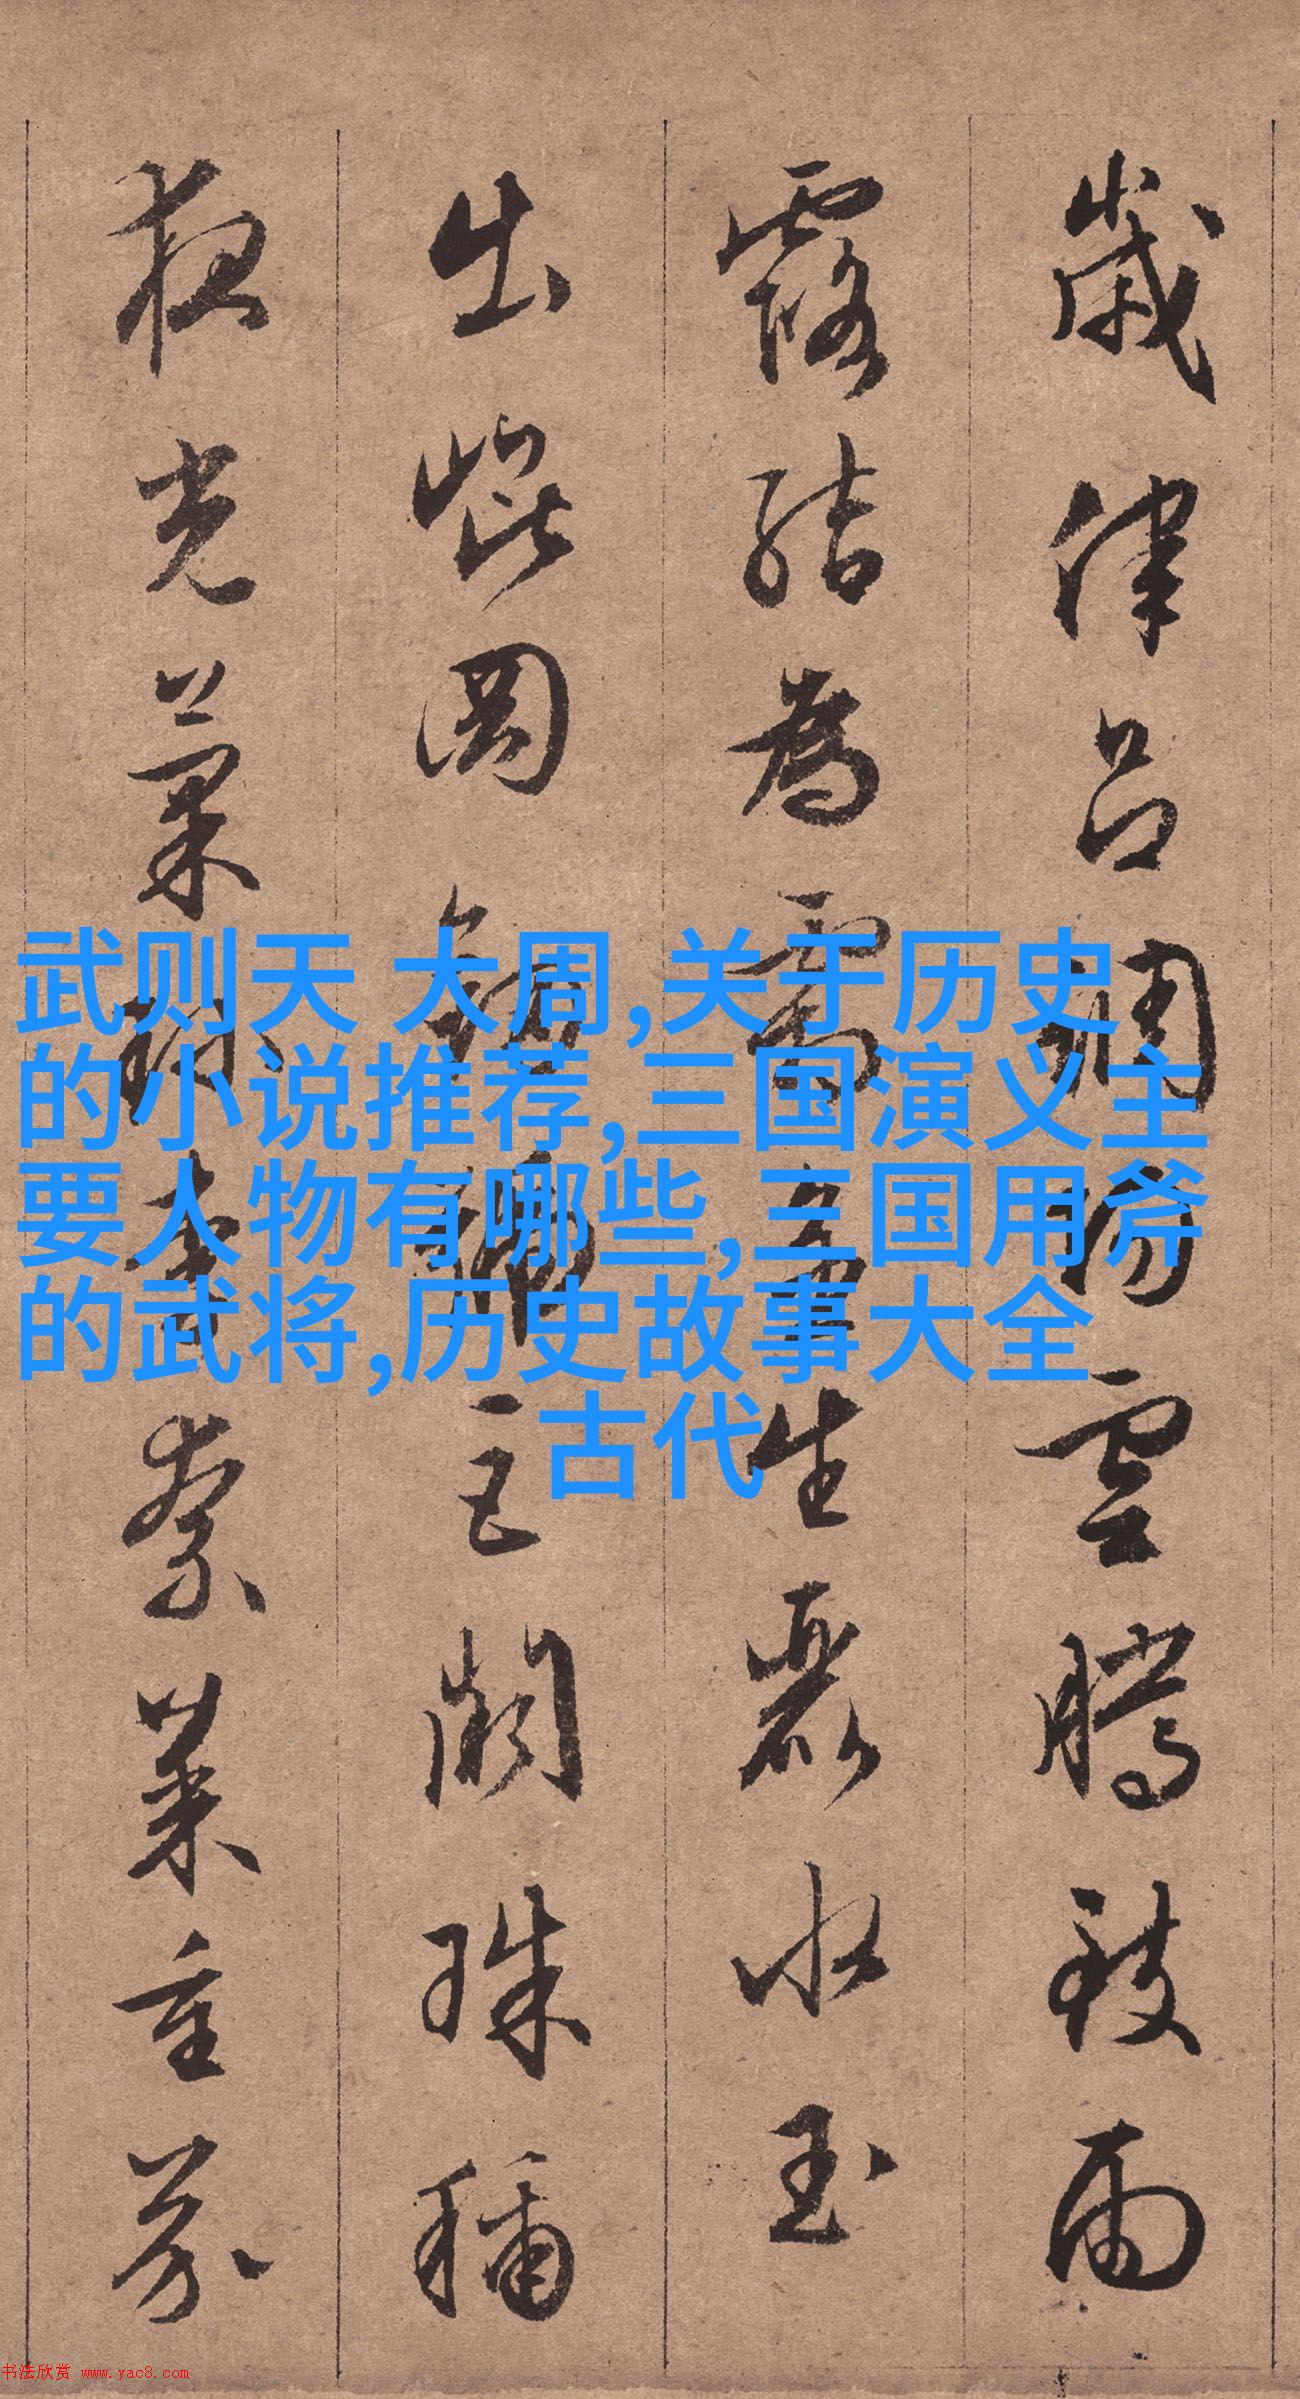 歲律呂調陽雲騰致雨
露結為霜金生麗水玉
出崐岡劍號巨闕珠稱
夜光菓珍李柰菜重芥
武则天 大周,关于历史
的小说推荐,三国演义主
要人物有哪些,三国用斧
的武将,历史故事大全
古代
书法欣赏 www.yac8.com